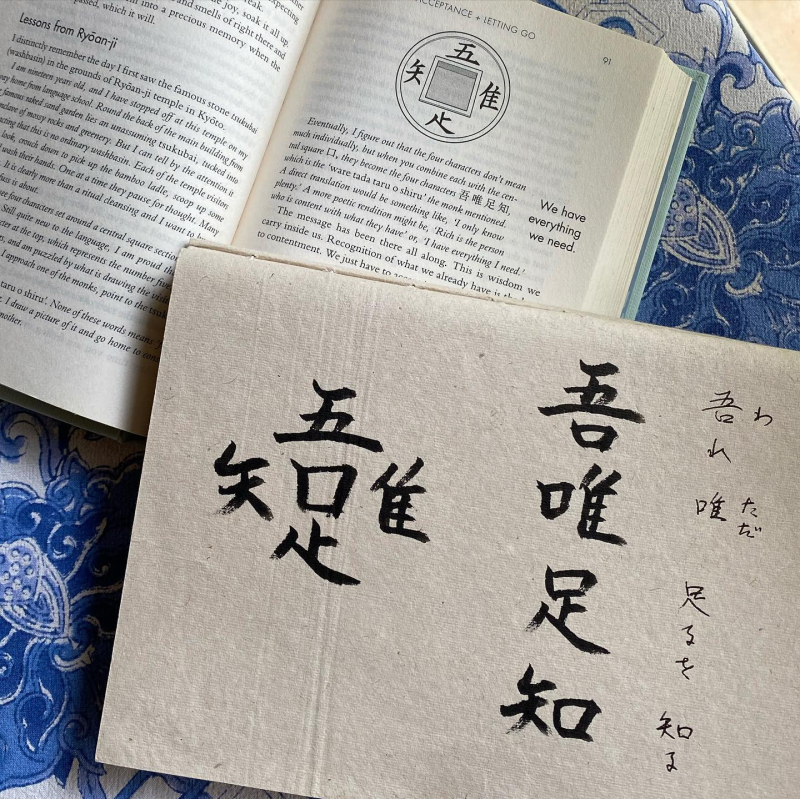 passed, which it will.
Lessons from Ryōan-ji
I distinctly remember the day I first saw the famous stone tsukubai
(washbasin) in the grounds of Ryōan-ji temple in Kyōto.
I am nineteen years old, and I have stopped off at this temple on my
way home from language school. Round the back of the main building from
famous raked sand garden lies an unassuming tsukubai, tucked into
of mossy rocks and greenery. But I can tell by the attention it
that this is no ordinary washbasin. Each of the temple visitors
look, crouch down to pick up the bamboo ladle, scoop up some
wash their hands. One at a time they pause for thought. Many
It is clearly more than a ritual cleansing and I want to
fuss is about.
four characters set around a central square section
Still quite new to the language, I am proud
at the top, which represents the number five
and am puzzled by what is drawing the
I approach one of the monks, point to the
taru o shiru'. None of these words means
I draw a picture of it and go home to
another.
ACCEPTANCE + LETTING GO
91
五
隹
止
矢
Eventually, I figure out that the four characters don't mean
much individually, but when you combine each with the cen-
tral square 口, they become the four character 吾唯足知,
which is the 'ware tada taru o shiru' the monk mentioned.
A direct translation would be something like, 'I only know
plenty.' A more poetic rendition might be, 'Rich is the person
who is content with what they have' or, 'I have everything I need.'
The message has been there all along. This is wisdom we
carry inside us. Recognition of what we already have is the
to contentment. We just have to
We have
everything
we need.
五
矢口隹
止
吾唯足知
わ
吾れ
ただ
唯
足るを
知る